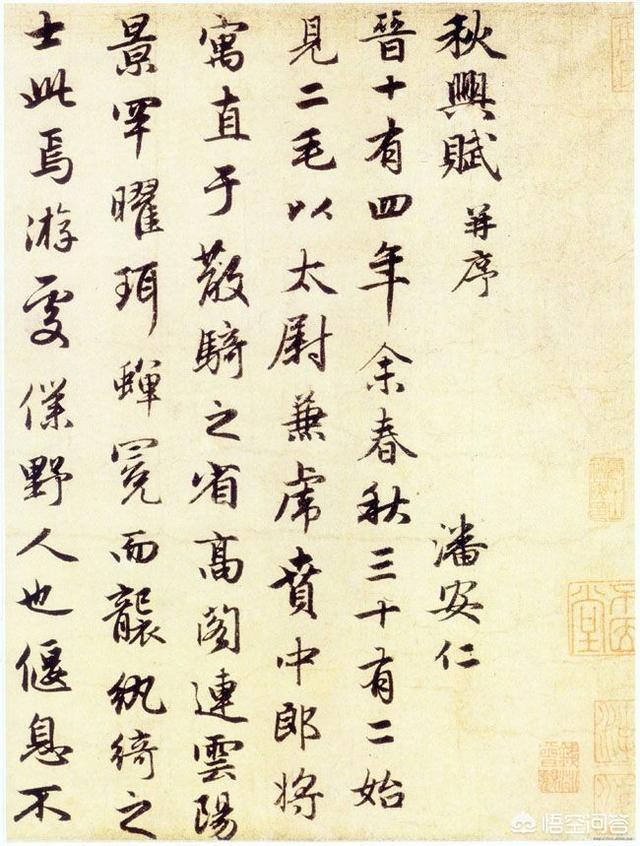 秋興賦 并序 潘安仁
晉十有四年余春秋三十有二始
見二毛以太尉兼虎賁中郎將
寓直于散騎之省高閣連雲陽
景罕曜珥蟬冕而襲紈綺之
士此焉游處僕野人也偃息不
悟空问答